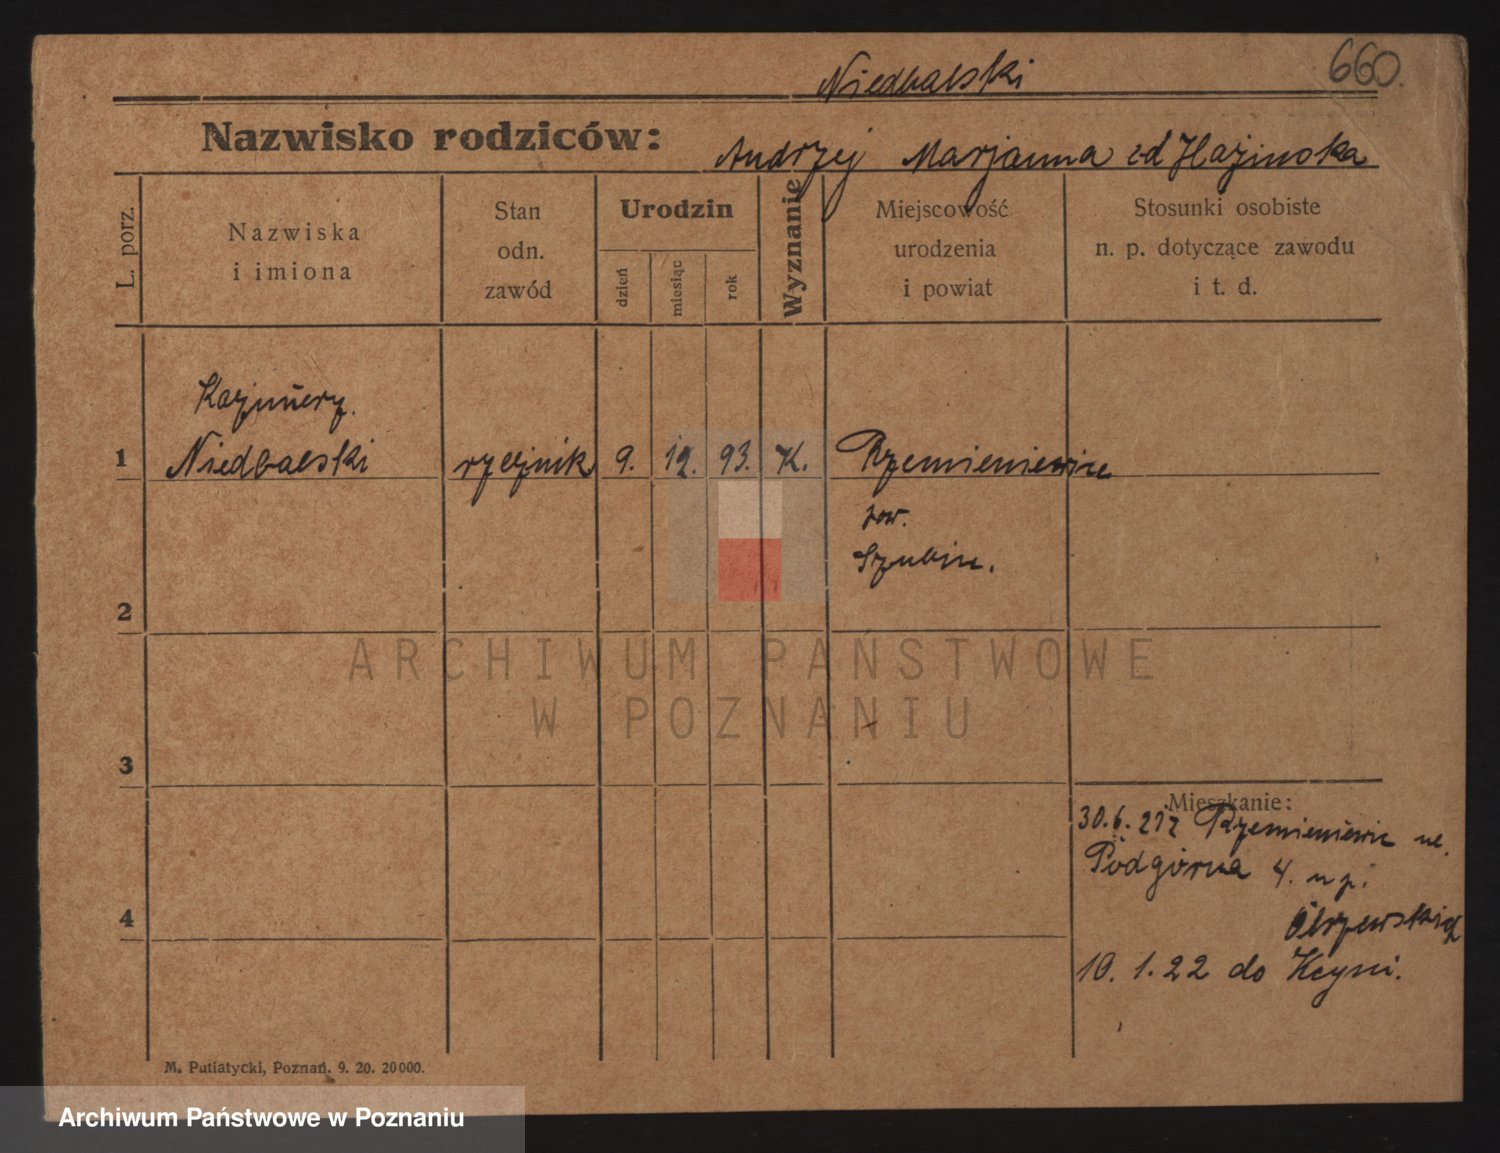 Niedbalski
660.
Nazwisko rodziców:
Andrzej Marjanna
L. porz.
Nazwiska
i imiona
Stan
odn.
zawód
Urodzin
dzień
miesiąc
rok
Wyznanie
Miejscowość
urodzenia
i powiat
Stosunki osobiste
n. p. dotyczące zawodu
i t. d.
Kazimierz.
1 Niedbalski 9. 12. 93. K. Rzemieniewice
pow.
Szubin.
2
ARCHIWUM PAŃSTWOWE
W POZNANIU
3
Mieszkanie:
30.6.21 z Rzemieniewic ul.
Podgórna 4.
4
10.1.22 do Kcyni.
M. Putiatycki, Poznań. 9. 20. 20000.
Archiwum Państwowe w Poznaniu